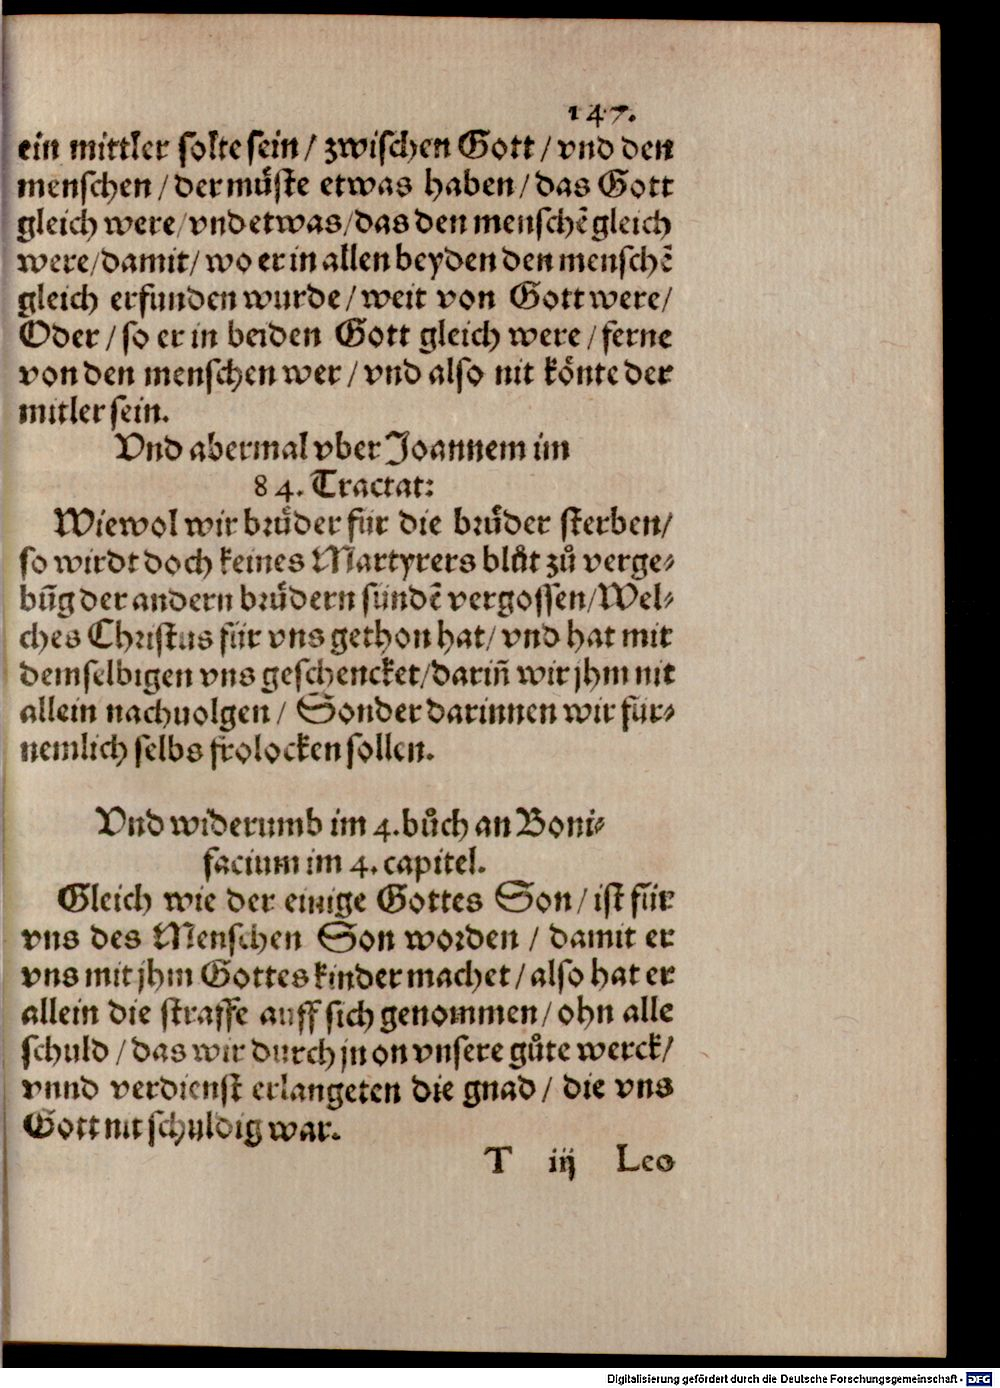 147.
ein mittler solte sein / zwischen Gott / vnd den
menschen / der muͤste etwas haben / das Gott
gleich were / vnd etwas / das den menschē gleich
were / damit / wo er in allen beyden den menschē
gleich erfunden wurde / weit von Gott were /
Oder / so er in beiden Gott gleich were / ferne
von den menschen wer / vnd also nit koͤnte der
mitler sein.
Vnd abermal vber Joannem im
84. Tractat:
Wiewol wir bruͤder fuͤr die bruͤder sterben /
so wirdt doch keines Martyrers bluͦt zuͦ verge⸗
būg der andern bruͤdern sündē vergossen / Wel⸗
ches Christus für vns gethon hat / vnd hat mit
demselbigen vns geschencket / darin̄ wir jhm nit
allein nachuolgen / Sonder darinnen wir für⸗
nemlich selbs frolocken sollen.
Vnd widerumb im 4. buͦch an Boni⸗
facium im 4. capitel.
Gleich wie der einige Gottes Son / ist für
vns des Menschen Son worden / damit er
vns mit jhm Gottes kinder machet / also hat er
allein die straffe auff sich genommen / ohn alle
schuld / das wir durch jn on vnsere guͦte werck /
vnnd verdienst erlangeten die gnad / die vns
Gott nit schuldig war.
T iij Leo
Digitalisierung gefördert durch die Deutsche Forschungsgemeinschaft - DFG